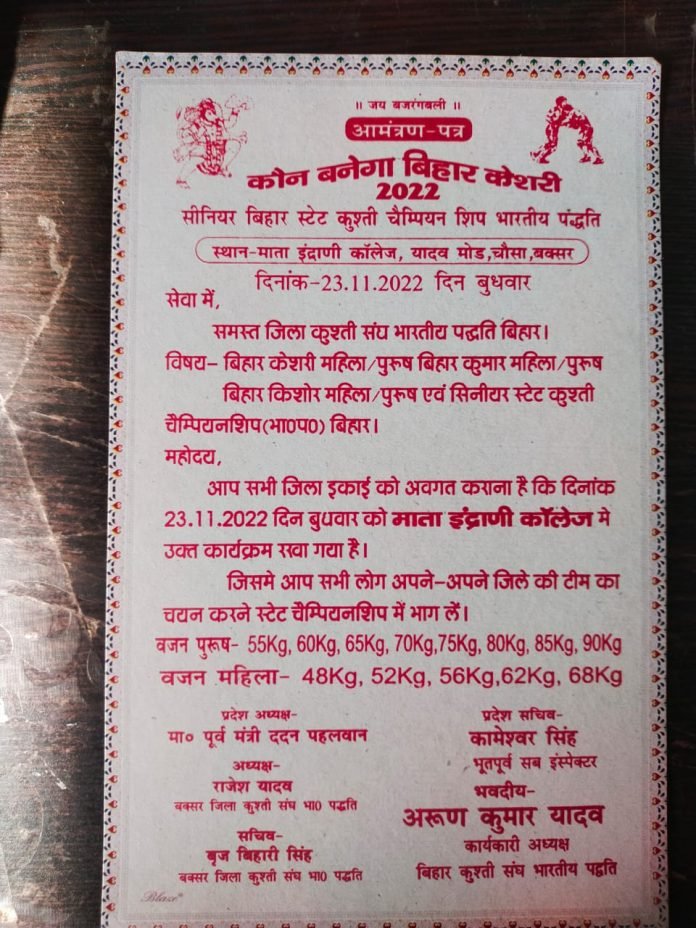 ॥ जय बजरंगबली ॥
आमंत्रण-पत्र
कौन बनेगा बिहार केशरी
2022
सीनियर बिहार स्टेट कुश्ती चैम्पियन शिप भारतीय पद्धति
स्थान-माता इंद्राणी कॉलेज, यादव मोड,चौसा,बक्सर
दिनांक-23.11.2022 दिन बुधवार
सेवा में,
समस्त जिला कुश्ती संघ भारतीय पद्धति बिहार।
विषय– बिहार केशरी महिला/पुरुष बिहार कुमार महिला/पुरुष
बिहार किशोर महिला/पुरुष एवं सिनीयर स्टेट कुश्ती
चैम्पियनशिप(भा0प0) बिहार।
महोदय,
आप सभी जिला इकाई को अवगत कराना है कि दिनांक
23.11.2022 दिन बुधवार को माता इंद्राणी कॉलेज मे
उक्त कार्यक्रम रखा गया है।
जिसमे आप सभी लोग अपने–अपने जिले की टीम का
चयन करने स्टेट चैम्पियनशिप में भाग लें।
वजन पुरुष- 55Kg, 60Kg, 65Kg, 70Kg,75Kg, 80Kg, 85Kg, 90Kg
वजन महिला- 48Kg, 52Kg, 56Kg,62Kg, 68Kg
प्रदेश अध्यक्ष-
मा० पूर्व मंत्री ददन पहलवान
अध्यक्ष-
राजेश यादव
बक्सर जिला कुश्ती संघ भा0 पद्धति
सचिव-
बृज बिहारी सिंह
बक्सर जिला कुश्ती संघ भा0 पद्धति
प्रदेश सचिव-
कामेश्वर सिंह
भूतपूर्व सब इंस्पेक्टर
भवदीय-
अरूण कुमार यादव
कार्यकारी अध्यक्ष
बिहार कुश्ती संघ भारतीय पद्वति
Blaze